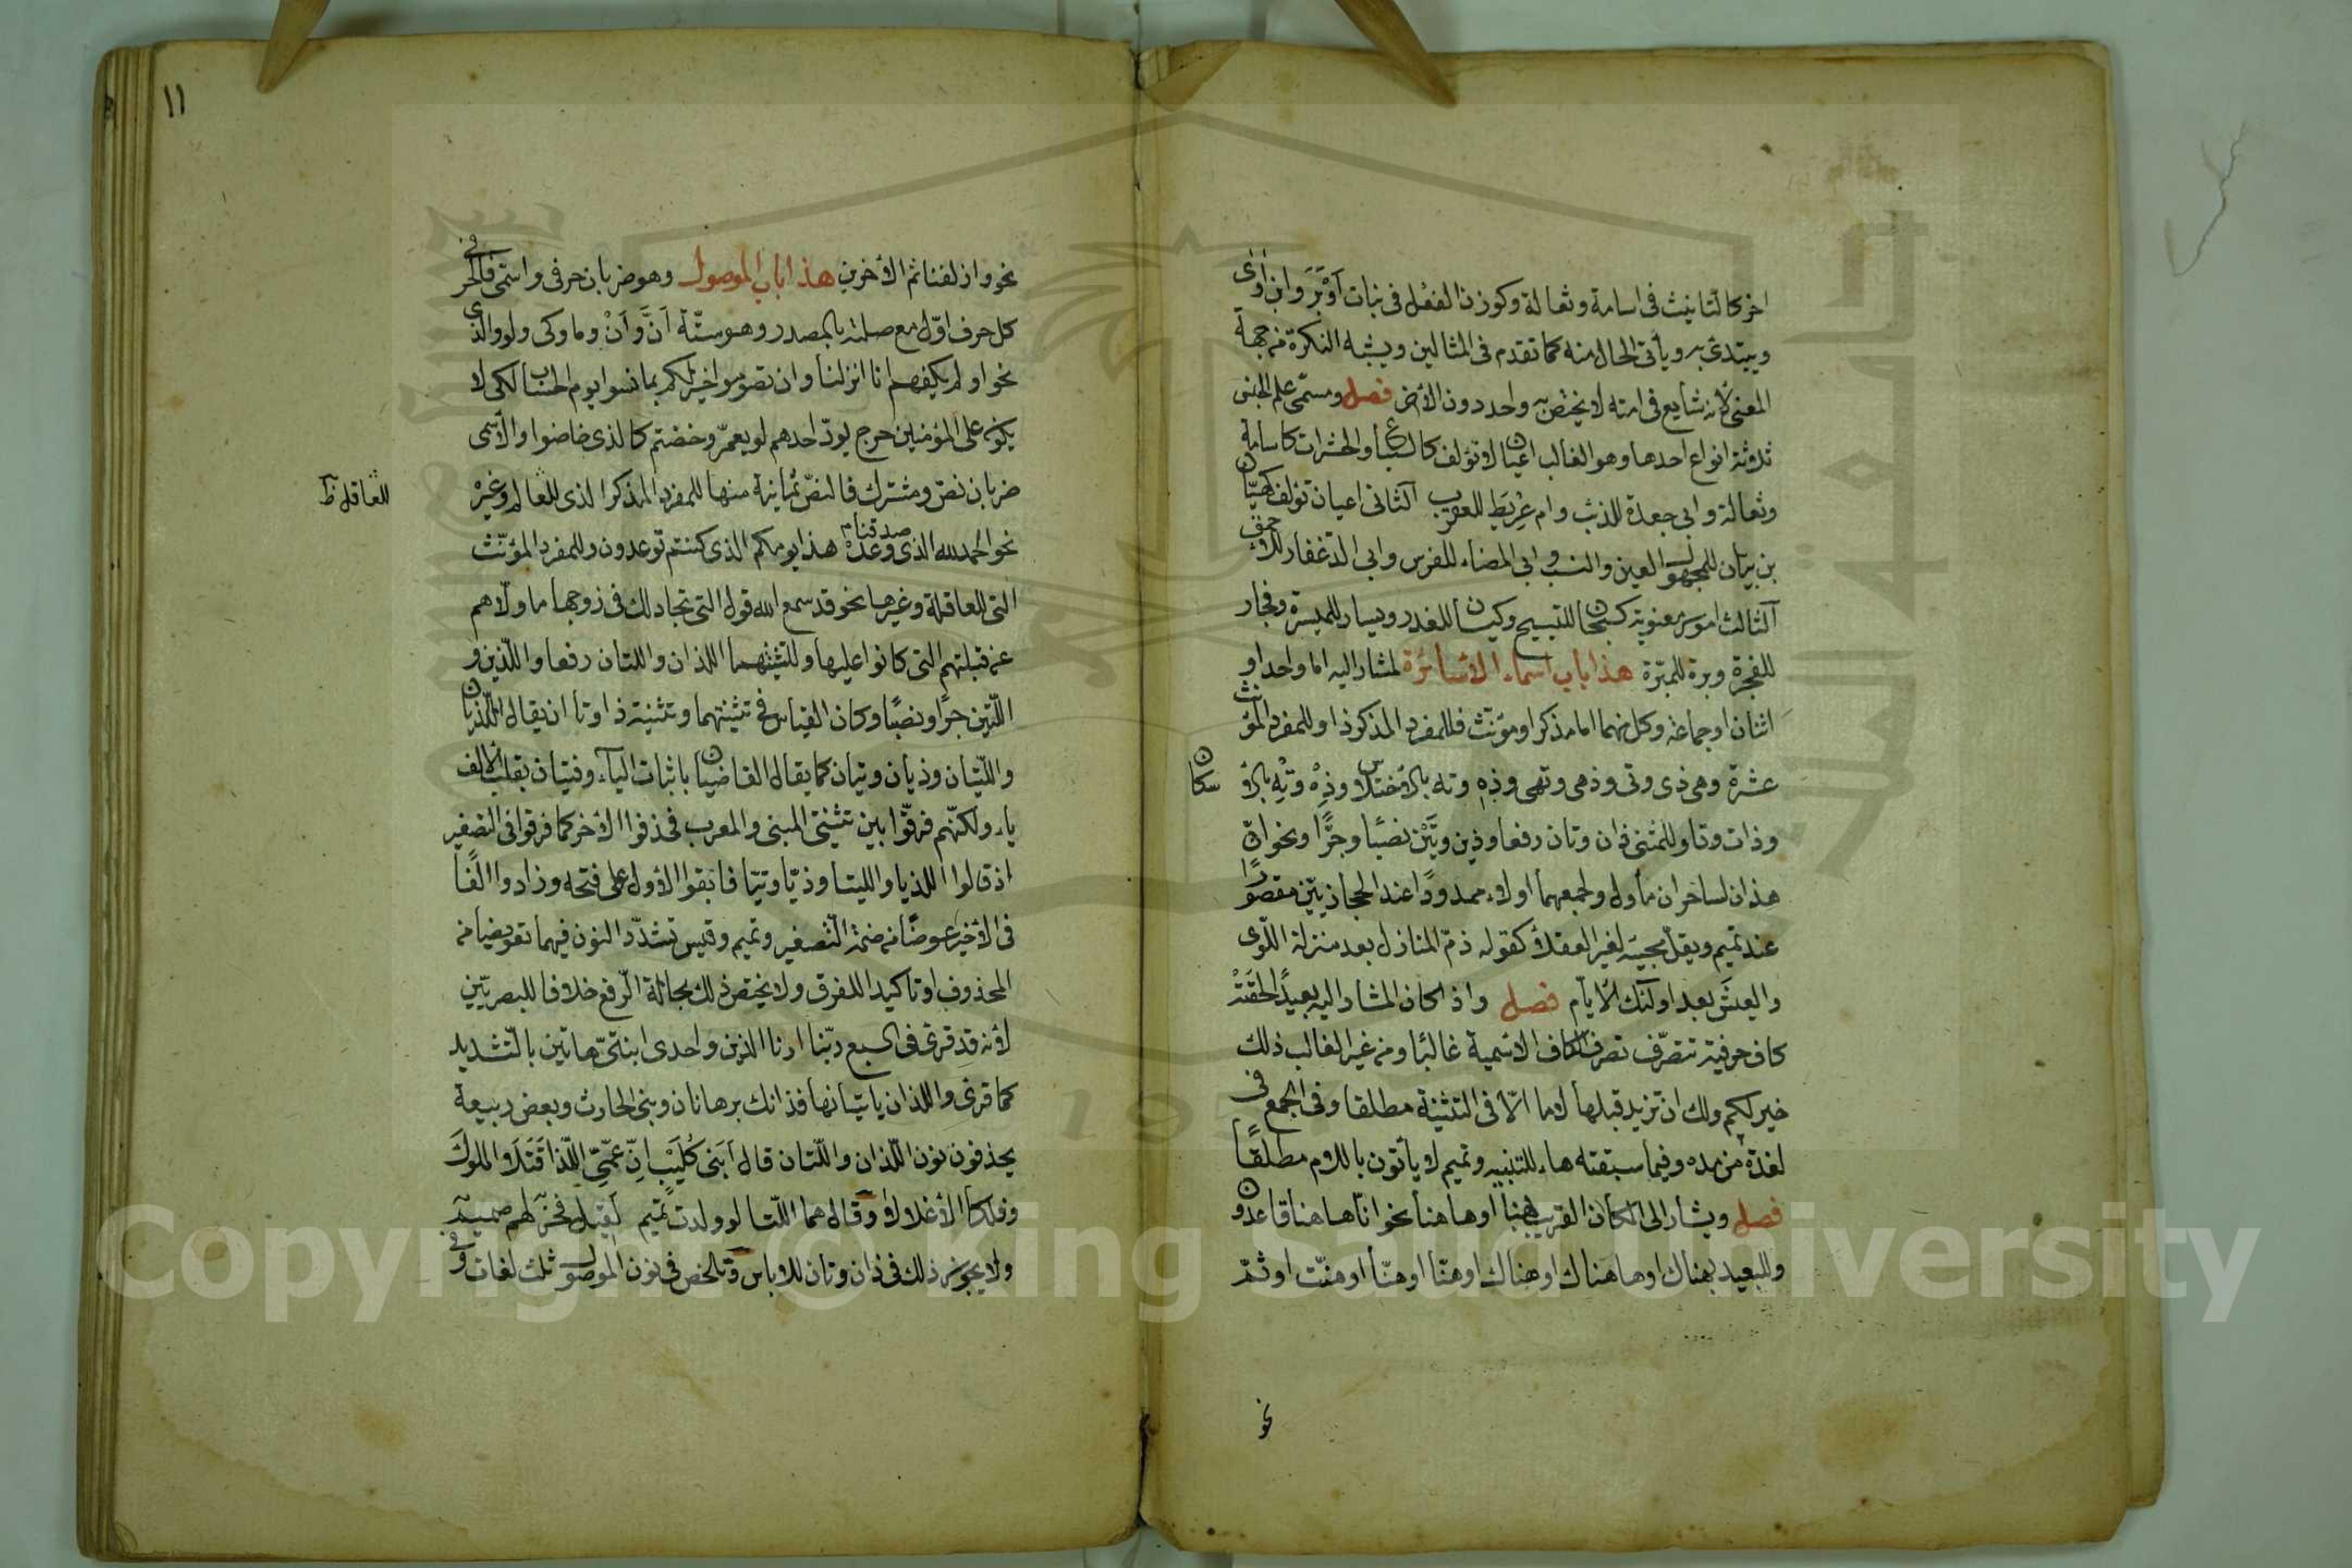 اخر كالتانيث فى اسامة وثعالة وكوزن الفعل فى بنات اَوْبَرَ وابن اٰوٰى
ويبتدئ به ويأتى الحال منه كما تقدم فى المثالين ويشبه النكرة من جهة
المعنى لأنه شايع فى امته لا يختص به واحد دون الأخر فصل ومسمّى علم الجنس
ثلاثة انواع احدها وهو الغالب اعيان لا تؤلف كالسباع والحشرات كاسامة
وثعالة وابى جعدة للذئب وام عِرْيَطِ للعقرب الثانى اعيان تؤلف كهيّان
بن بيّان للمجهول العين والنسب وابى المضاء للفرس وابى الدغفار للأحمق
الثالث امور معنوية كسبحان للتسبيح وكيسان للغدر ويسار للميسرة وفجار
للفجرة وبرة للمبرّة هذا باب اسماء الاشارة لمشار اليه اما واحد او
اثنان او جماعة وكل منهما اما مذكر او مؤنّث فللمفرد المذكر ذا وللمفرد المؤنث
عشرة وهى ذى وتى وذهى وتهى وذهِ وته بالاختلاس وذِهْ وتِهْ بالاسكان
وذات وتا وللمثنى ذان وتان رفعا وذين وتَيْن نصبًا وجرًّا ونحو ان
هذان لساحران مأول ولجمعهما اولاء ممدودًا عند الحجازيّين مقصورًا
عند تميم ويقل مجيئه لغير العقلاء كقوله ذمّ المنازل بعد منزلة اللّوى
والعيشَ بعد اولٓئك الأيّام فصل واذا كان المشار اليه بعيدًا لحقَتْه
كاف حرفية تتصّرف تصرف الكاف الاسمية غالبًا ومن غير الغالب ذلك
خير لكم ولك ان تزيد قبلها لاما الّا فى التثنية مطلقا وفى الجمع فى
لغة من مده وفيما سبقته هاء للتنبيه وتميم لا يأتون باللام مطلقًا
فصل ويشار الى المكان القريب بهنا او هاهنا نحو انّا هاهنا قاعدون
وللبعيد بهناك او هاهناك او هنالك او هنّا او هنّا او هنّت او ثمّ
نحو
١١
نحو وازلفنا ثم الأخرين هذا باب الموصول وهو ضربان حرفى واسمى فالحرفى
كل حرف اوّل مع صلته بالمصدر وهو ستّة اَنَّ وَاَنْ وما وكى ولو والذى
نحو او لم يكفهم انا انزلنا وان تصوموا خير لكم بما نسوا يوم الحساب لكى لا
يكون على المؤمنين حرج يودّ احدهم لو يعمّر وخضتم كالذى خاضوا والأسمى
ضربان نصّ ومشترك فالنصّ ثمانية منها للمفرد المذكر الذى للعالم وغيره
العاقل ظ
نحو الحمد لله الذى صدقنا وعده هذا يومكم الذى كنتم توعدون وللمفرد المؤنّث
التى للعاقلة وغيرها نحو قد سمع الله قول التى تجادلك فى زوجها ما ولّاهم
عن قبلتهم التى كانوا عليها ولتثنيتهما اللذان واللتان رفعا واللّذين و
اللّتين جرًا ونصبًا وكان القياس فى تثنيتهما وتثنية ذا وتا ان يقال اللّذيان
واللّتيان وذيان وتيان كما يقال القاضيان باثبات اليآء وفتيان بقلب الالف
ياء ولكنّهم فرقّوا بين تثنيتى المبنى والمعرب فحذفوا الأخر كما فرقوا فى التصغير
اذ قالوا اللذيا واللتيا وذيّا وتيّا فابقوا الأول على فتحه وزادوا الفًا
فى الأخير عوضًا من ضمّة التّصغير وتميم وقيس تشدّد النون فيهما تعويضا من
المحذوف او تاكيدا للفرق ولا يختص ذلك بحالة الرّفع خلافا للبصريّين
لأنه قد قرئ فى السبع ربّنا ارنا الذين واحدى ابنتىّ هاتين بالتّشديد
كما قرئ واللذان ياتيانها فذانك برهانان وبنى الحارث وبعض ربيعة
يحذفون نون اللّذان واللّتان قال اَبَنى كُلَيْب انّ عَمّىّ اللّذا قَتَلَا الملوكَ
وفككا الأغلالا وقال هما اللّتا لو ولدت تميم لَقيل فخر لهم صميم
ولا يجوز ذلك فى ذان وتان للالباس وتلخص فى نون الموصول ثلث لغات وفى